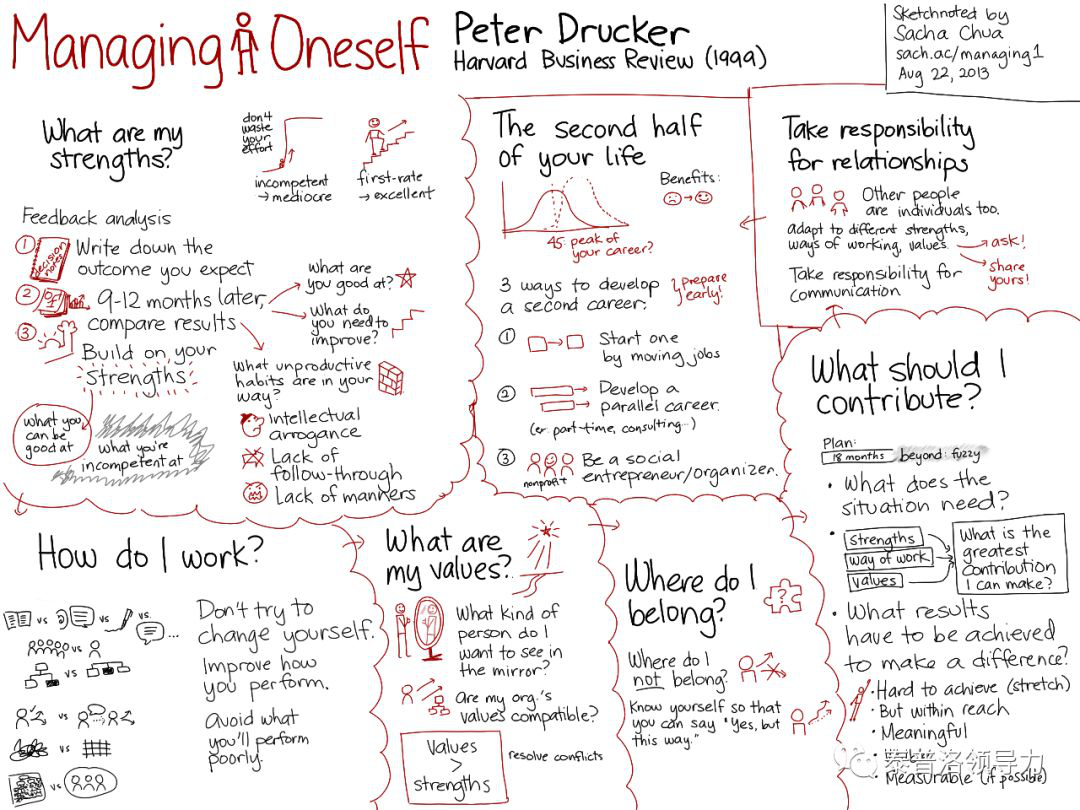 Managing Oneself
Peter Drucker
Harvard Business Review (1999)
Sketchnoted by
Sacha Chua
sach.ac/managing1
Aug 22, 2013
What are my
strengths?
don't
waste
your
effort
incompetent
→ mediocre
first-rate
→ excellent
Feedback analysis
① Write down the
outcome you expect
decision
notes
② 9-12 months later,
compare results
③ Build on your
strengths
What are
you good at?
What do
you need to
improve?
What unproductive
habits are in your
way?
Intellectual
arrogance
Lack of
follow-through
Lack of manners
what you
can be
good at
what you're
incompetent at
The second half
of your life
Benefits:
45: peak of
your career?
3 ways to develop
a second career:
prepare
early!
① Start one
by moving jobs
② Develop a
parallel career.
(ex: part-time, consulting...)
③ Be a social
entrepreneur/organizer.
nonprofit
Take responsibility
for relationships
Other people
are individuals too.
adapt to different strengths,
ways of working, values.
→ ask!
share
yours!
Take responsibility for
communication
How do I work?
vs
vs
vs.
...
vs
vs
vs
vs
vs
Don't try to
change yourself.
Improve how
you perform.
Avoid what
you'll perform
poorly.
What are
my values?
What kind of
person do I
want to see in
the mirror?
Are my org.'s
values compatible?
Values
>
strengths
resolve conflicts
Where do I
belong?
?
Where do I
not belong?
Know yourself so that
you can say "Yes, but
this way."
What should I
contribute?
Plan:
18 months
beyond: fuzzy
• What does the
situation need?
• strengths
way of work
values
What is the
greatest
contribution
I can make?
• What results
have to be achieved
to make a difference?
• Hard to achieve (stretch)
• But within reach
• Meaningful
• Measurable (if possible)
泰普洛领导力